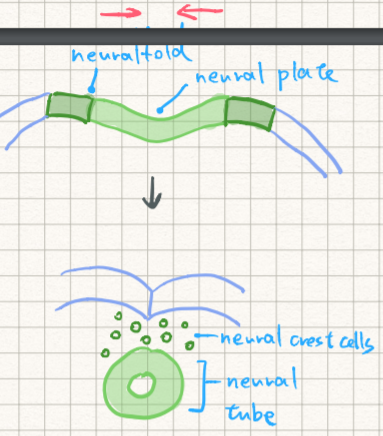 neuralfold
neural plate
neural crest cells
neural
tube